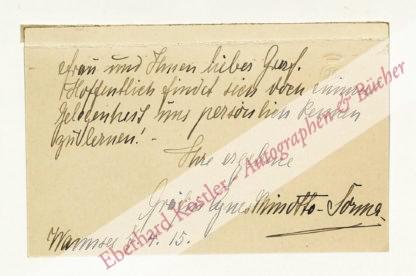 Frau und Ihnen lieber Graf.
Hoffentlich findet sich doch einmal
Gelegenheit uns persönlich kennen
zu lernen! –
Ihre ergebene
Gräfin Agnes Minotto-Sorma
Wannsee 4. 15.
Eberhard Köstler · Autographen & Bücher